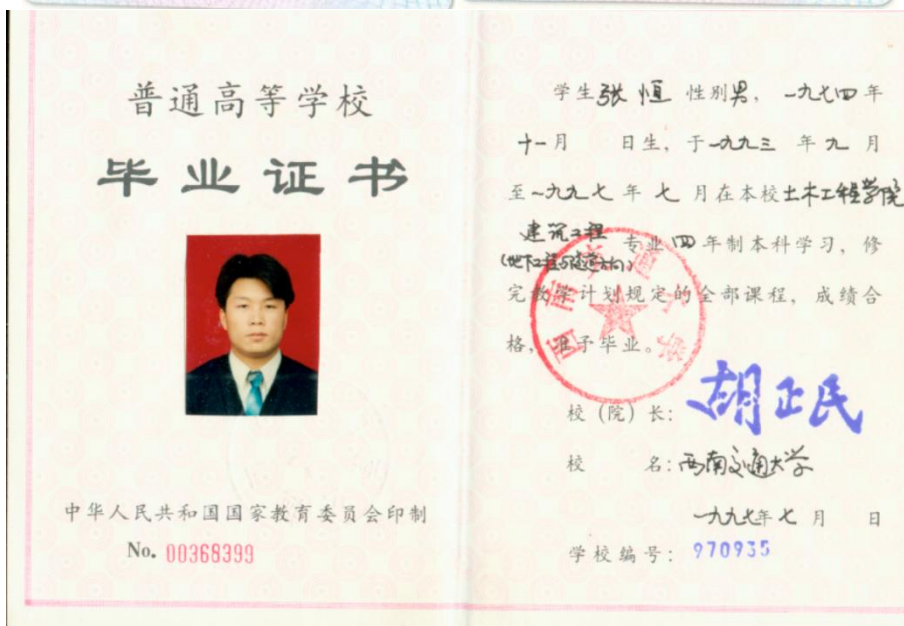 普通高等学校
毕业证书
中华人民共和国国家教育委员会印制
No. 00368399
学生张恒 性别男，一九七四年
十一月 日生，于一九九三 年九 月
至一九九七 年 七 月在本校土木工程学院
建筑工程 专业 四 年制本科学习，修
完教学计划规定的全部课程，成绩合
格，准予毕业。
西南交通大学
校（院）长：胡正民
校 名：西南交通大学
一九九七年七 月 日
学校编号：970935